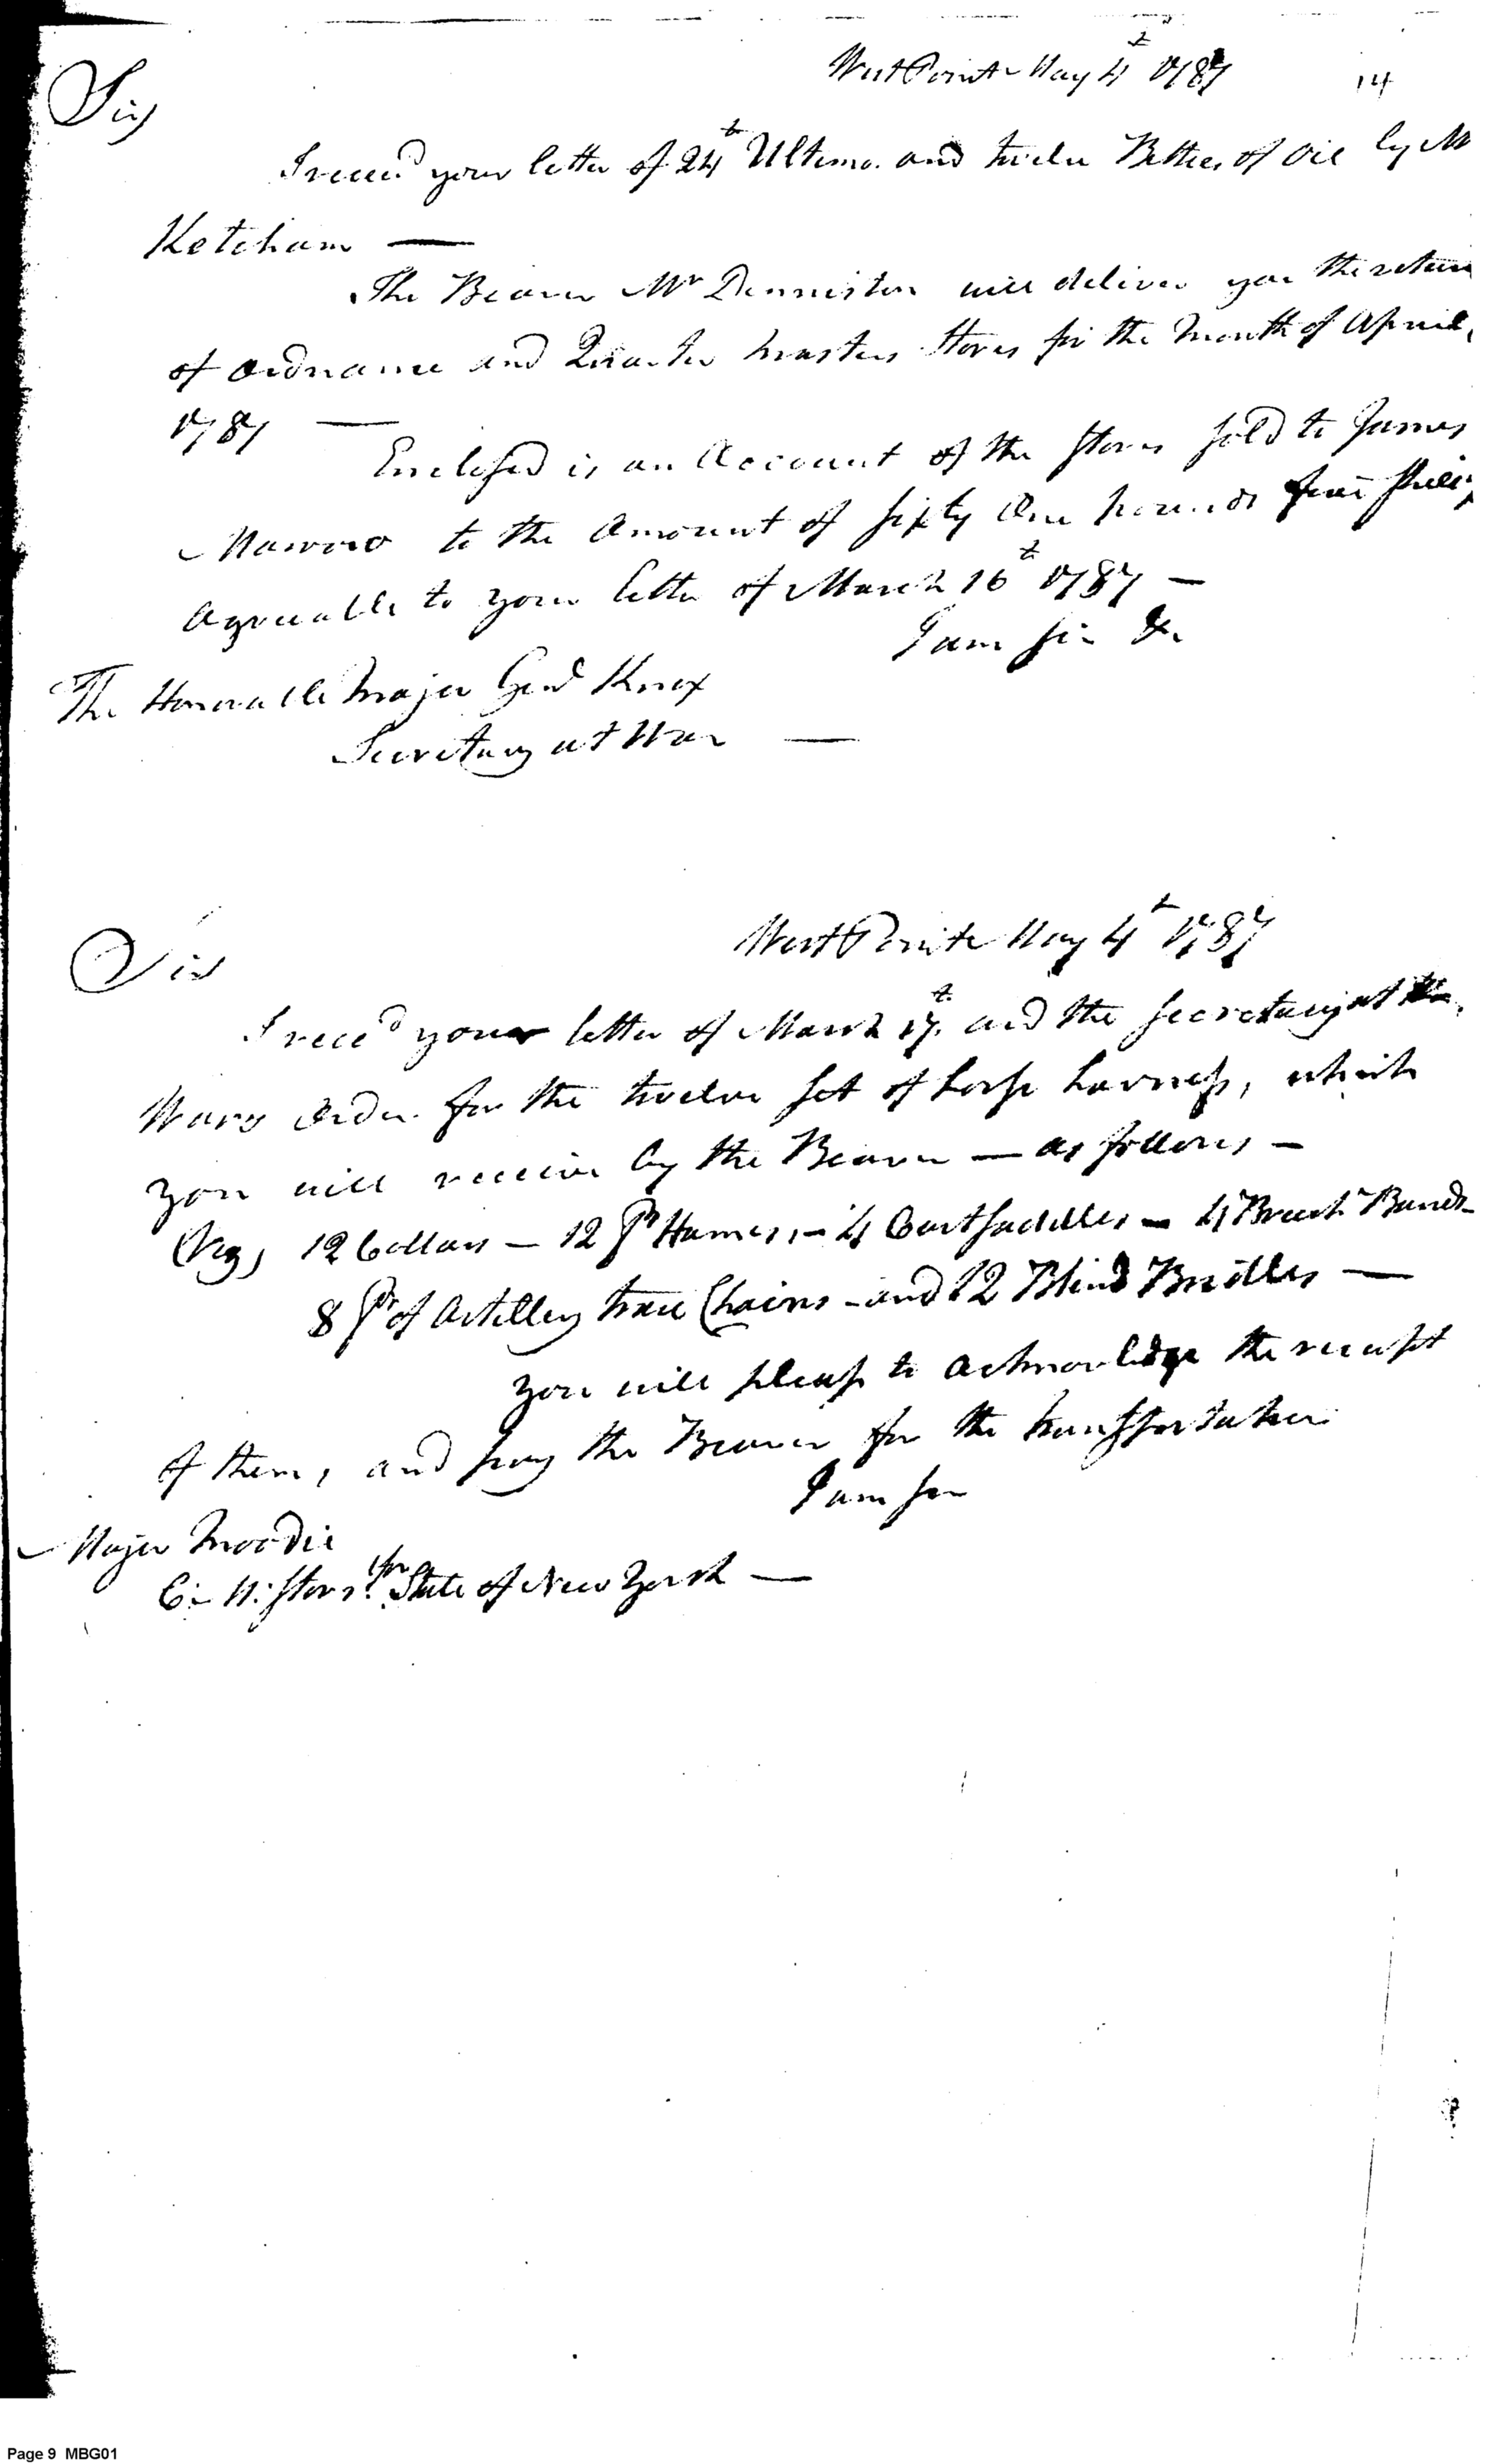 West Point May 4t 1787
14
Sir,
I receed your letter of 24t Ultimo. and twelve Bottles of Oil by Mr
Ketcham —
The Bearer Mr Denniston will deliver you the return
of Ordnance and Quarter Masters Stores for the Month of April,
1787 —
Enclosed is an Account of the Stores sold to James
to the Amount of sixty One pounds four
Agreeable to your letter of March 16t 1787 —
I am Sir &c
The Honorable Major Genl Knox
Secretary at War —
West Point May 4t 1787
Sir
I receed your letter of March 17t and the Secretary at
Wars Order for the twelve set of horse harness, which
you will receive by the Bearer — as follows —
(Viz) 12 Collars — 12 pr Hames, — 4 Cartsaddles — 4 Breech Bands
8 pr of Artillery trace Chains — and 12 Blind Bridles —
you will please to acknowledge the receipt
of them, and pay the Bearer for the transportation
I am Sir
Major Moodie
for
State of New York —
Page 9 MBG01